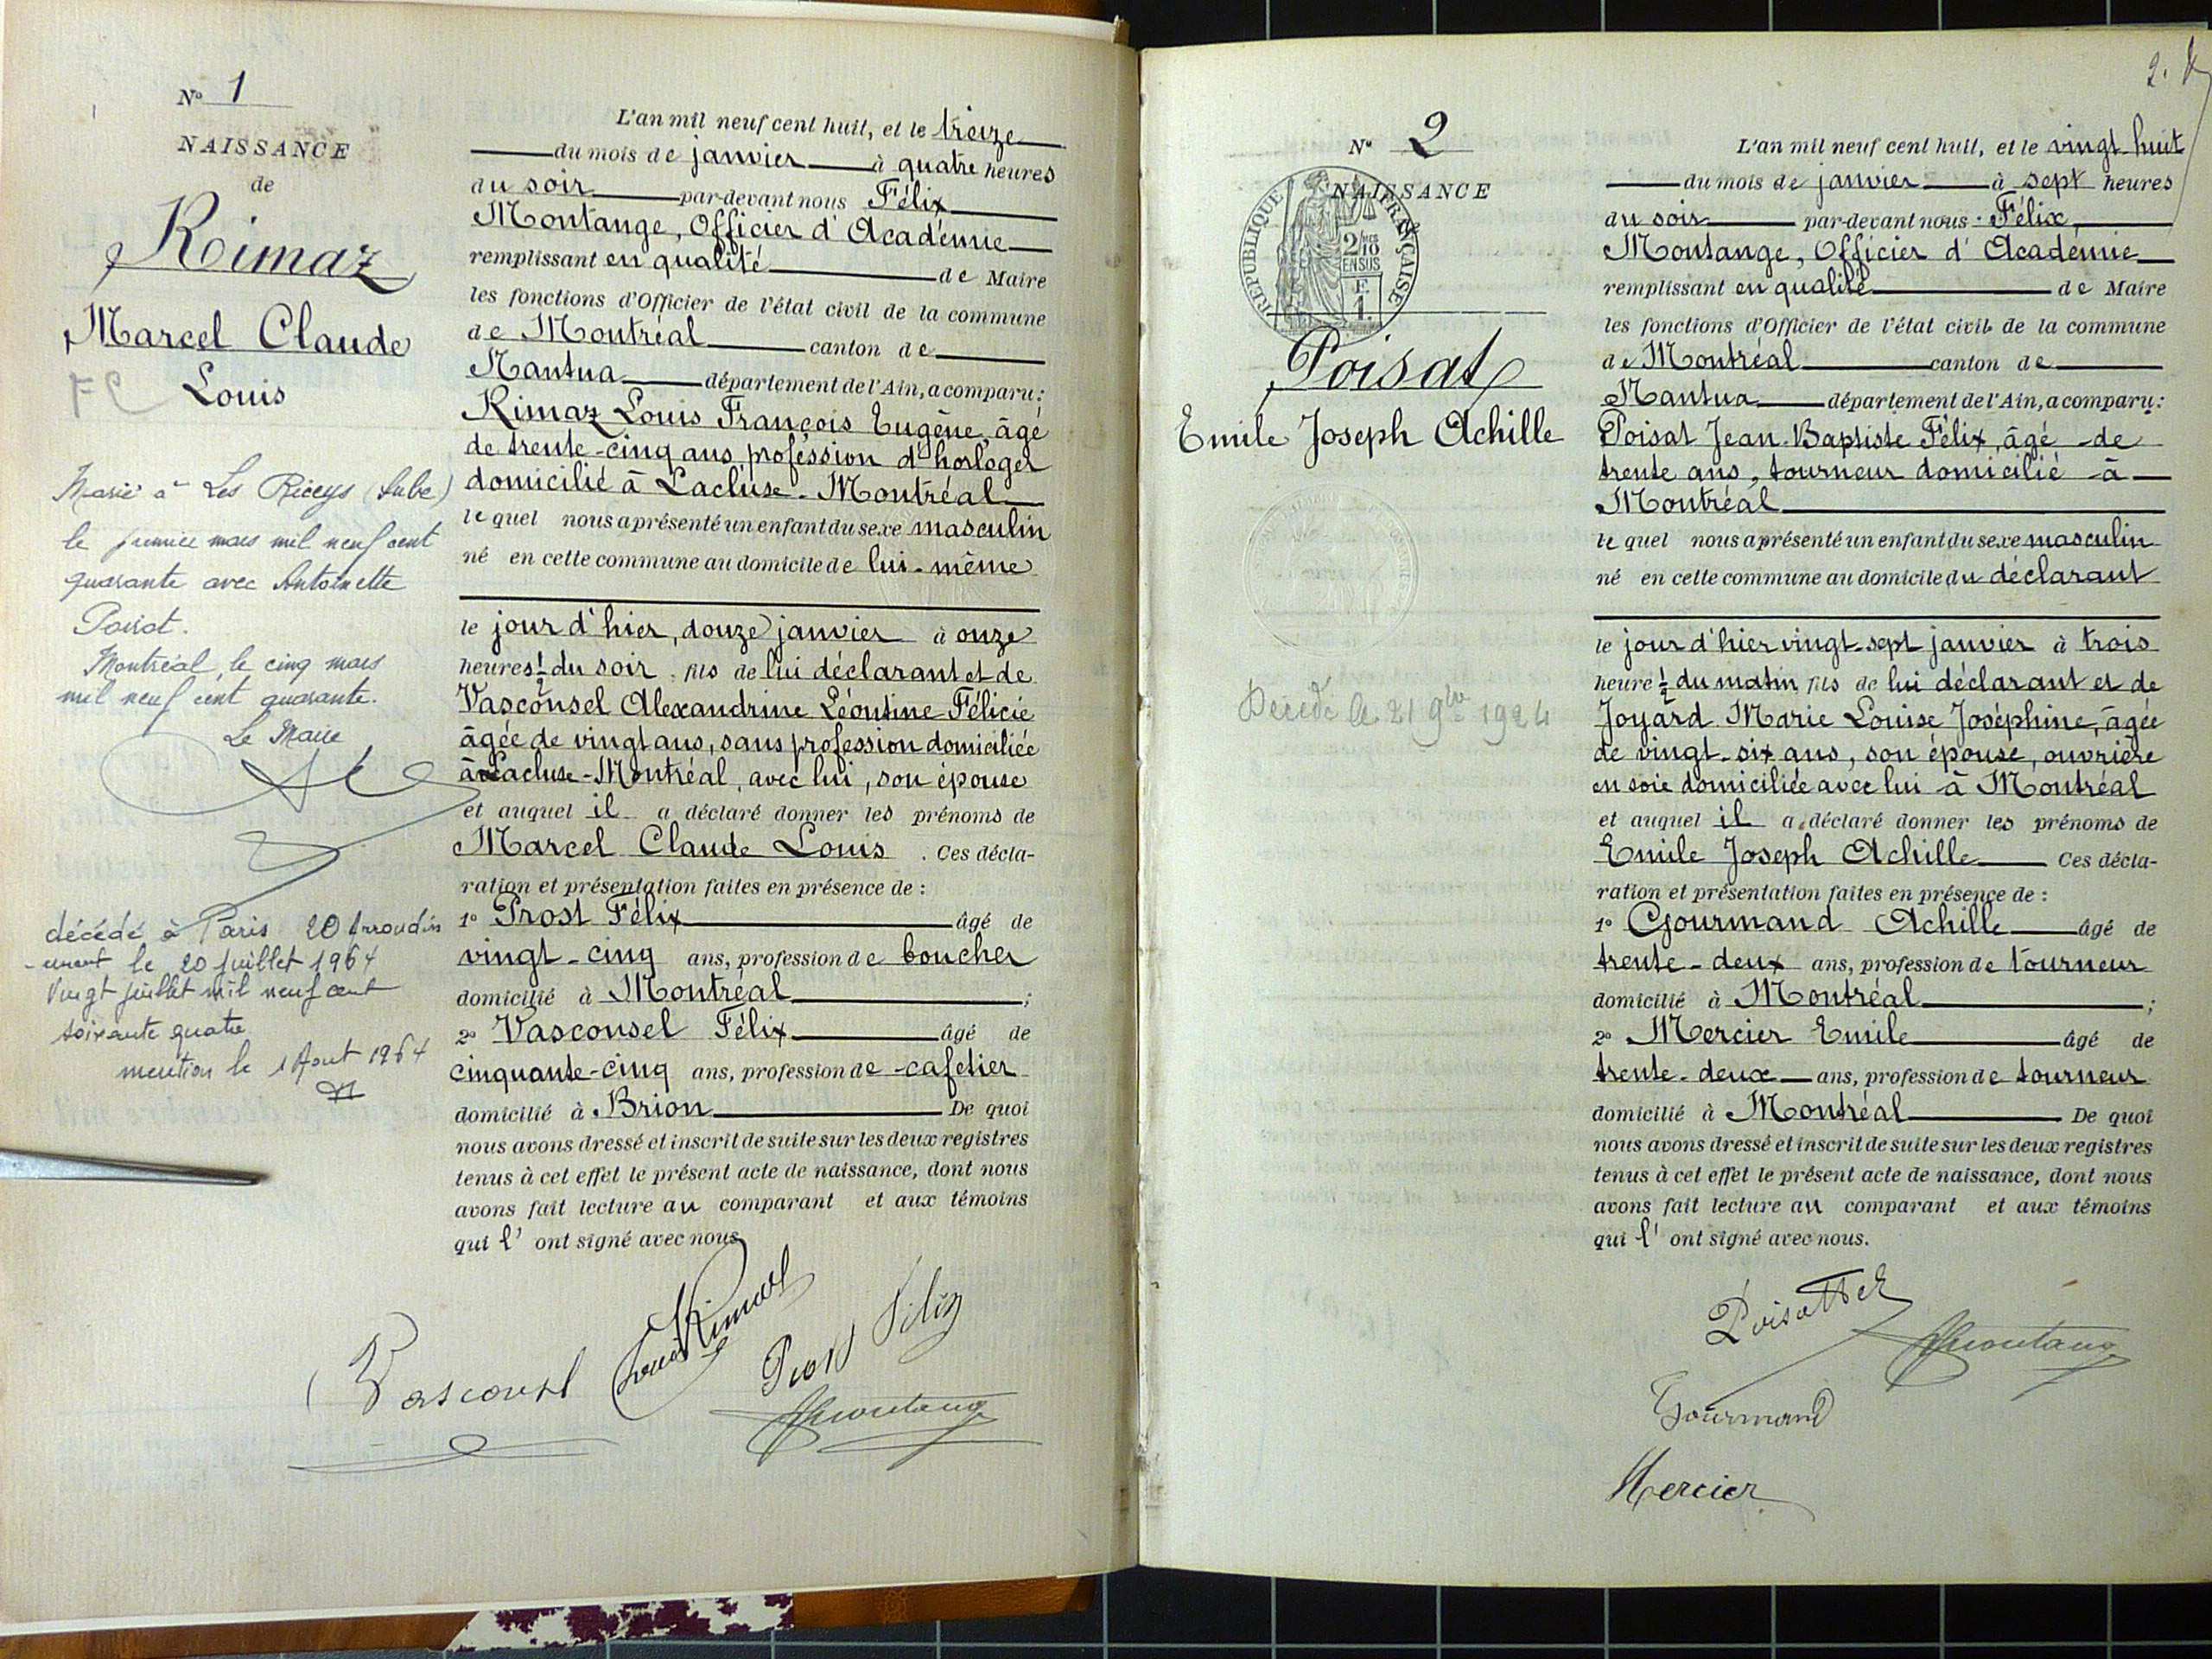 N° 1
NAISSANCE
de
Rimaz
Marcel Claude
Louis
Marié à Les Riceys (Aube)
le premier mars mil neuf cent
quarante avec Antoinette
Poisot.
Montréal, le cinq mars
mil neuf cent quarante.
Le Maire
décédé à Paris 20 Arrondis
-ement le 20 juillet 1964
Vingt juillet mil neuf cent
soixante quatre
mention le 1 Aout 1964
L'an mil neuf cent huit, et le treize
du mois de janvier à quatre heures
du soir par-devant nous Félix
Montange, Officier d'Académie
remplissant en qualité de Maire
les fonctions d'Officier de l'état civil de la commune
de Montréal canton de
Nantua département de l'Ain, a comparu:
Rimaz Louis François Eugène, âgé
de trente-cinq ans, profession d'horloger
domicilié à Lacluse-Montréal
lequel nous a présenté un enfant du sexe masculin
né en cette commune au domicile de lui-même
le jour d'hier, douze janvier à onze
heures ½ du soir, fils de lui déclarant et de
Vasconsel Alexandrine Léontine Félicie
âgée de vingt ans, sans profession domiciliée
à Lacluse-Montréal, avec lui, son épouse
et auquel il a déclaré donner les prénoms de
Marcel Claude Louis. Ces décla-
ration et présentation faites en présence de :
1° Prost Félix âgé de
vingt-cinq ans, profession de boucher
domicilié à Montréal ;
2° Vasconsel Félix âgé de
cinquante-cinq ans, profession de cafetier
domicilié à Brion De quoi
nous avons dressé et inscrit de suite sur les deux registres
tenus à cet effet le présent acte de naissance, dont nous
avons fait lecture au comparant et aux témoins
qui l' ont signé avec nous.
Vasconsel Louis Rimaz Prost Félix
Montange
2.
N° 2
NAISSANCE
RÉPUBLIQUE FRANÇAISE
2/10
EN SUS
F.
1.
Poisat
Emile Joseph Achille
Décédé le 21 9bre 1924
L'an mil neuf cent huit, et le vingt-huit
du mois de janvier à sept heures
du soir par-devant nous Félix
Montange, Officier d'Académie
remplissant en qualité de Maire
les fonctions d'Officier de l'état civil de la commune
de Montréal canton de
Nantua département de l'Ain, a comparu:
Poisat Jean-Baptiste Félix, âgé de
trente ans, tourneur domicilié à
Montréal
lequel nous a présenté un enfant du sexe masculin
né en cette commune au domicile du déclarant
le jour d'hier vingt-sept janvier à trois
heure ½ du matin, fils de lui déclarant et de
Joyard Marie Louise Joséphine, âgée
de vingt-six ans, son épouse, ouvrière
en soie domiciliée avec lui à Montréal
et auquel il a déclaré donner les prénoms de
Emile Joseph Achille Ces décla-
ration et présentation faites en présence de :
1° Gourmand Achille âgé de
trente-deux ans, profession de tourneur
domicilié à Montréal ;
2° Mercier Emile âgé de
trente-deux ans, profession de tourneur
domicilié à Montréal De quoi
nous avons dressé et inscrit de suite sur les deux registres
tenus à cet effet le présent acte de naissance, dont nous
avons fait lecture au comparant et aux témoins
qui l' ont signé avec nous.
Poisat
Montange
Gourmand
Mercier